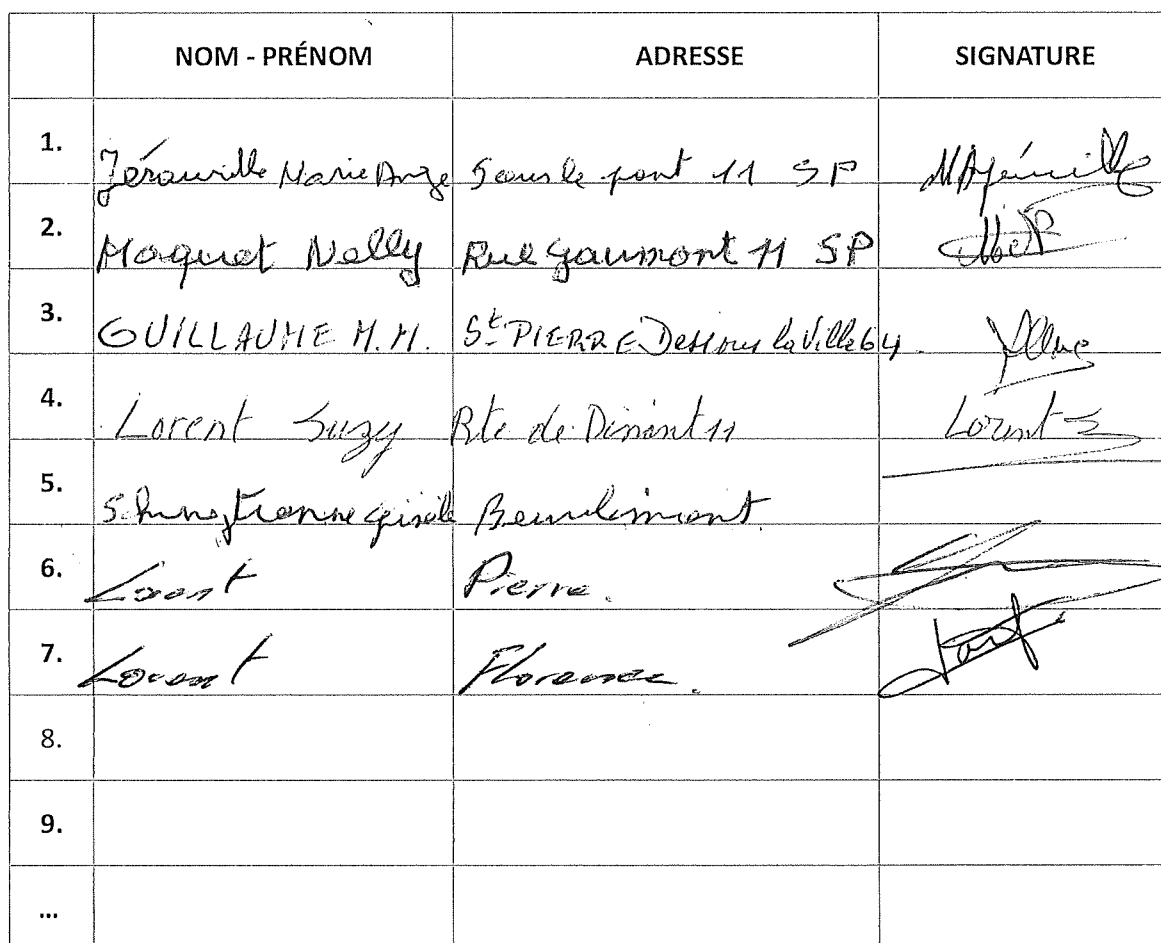 NOM - PRÉNOM ADRESSE SIGNATURE
1. Jérouville Marie Ange Sous le pont 11 SP
2. Maquet Nelly Rue Gaumont 11 SP
3. GUILLAUME M.M. St PIERRE Dessous la Ville 64
4. Lorent Suzy Rte de Dinant 11 Lorent S
5. Beaulimont.
6. Lorent Pierre.
7. Lorent Florence.
8.
9.
...